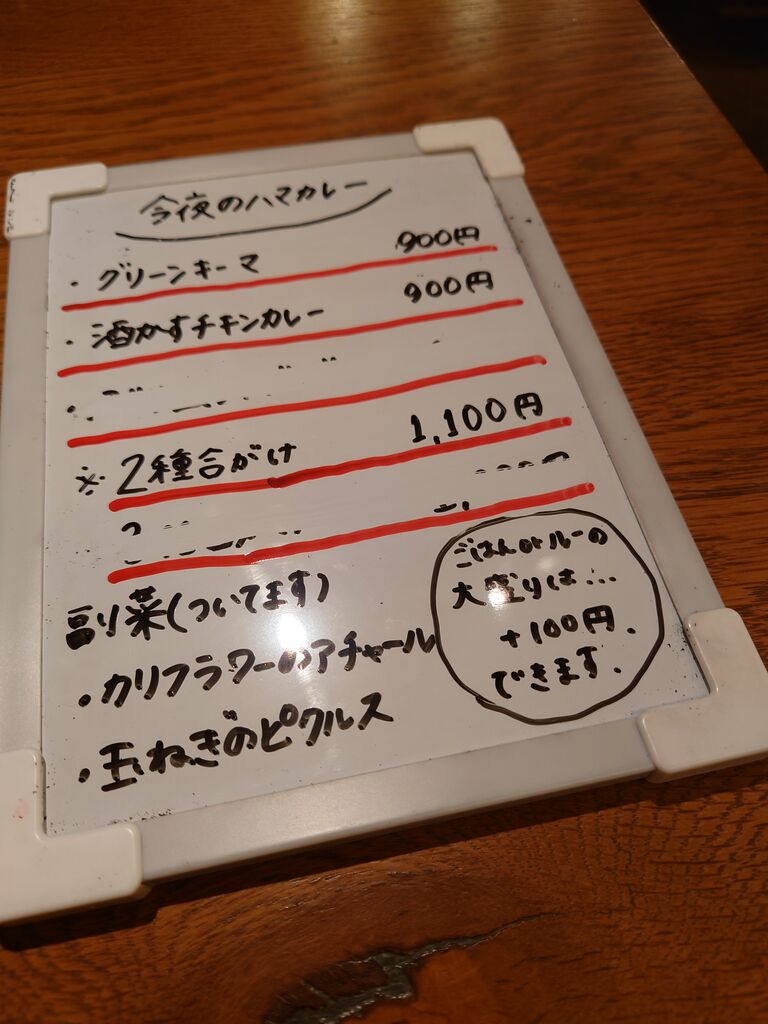 今夜のハマカレー
・グリーンキーマ 900円
・酒かすチキンカレー 900円
※2種合がけ 1,100円
副菜(ついてます)
・カリフラワーのアチャール
・玉ねぎのピクルス
ごはんorルーの
大盛りは...
+100円.
できます.